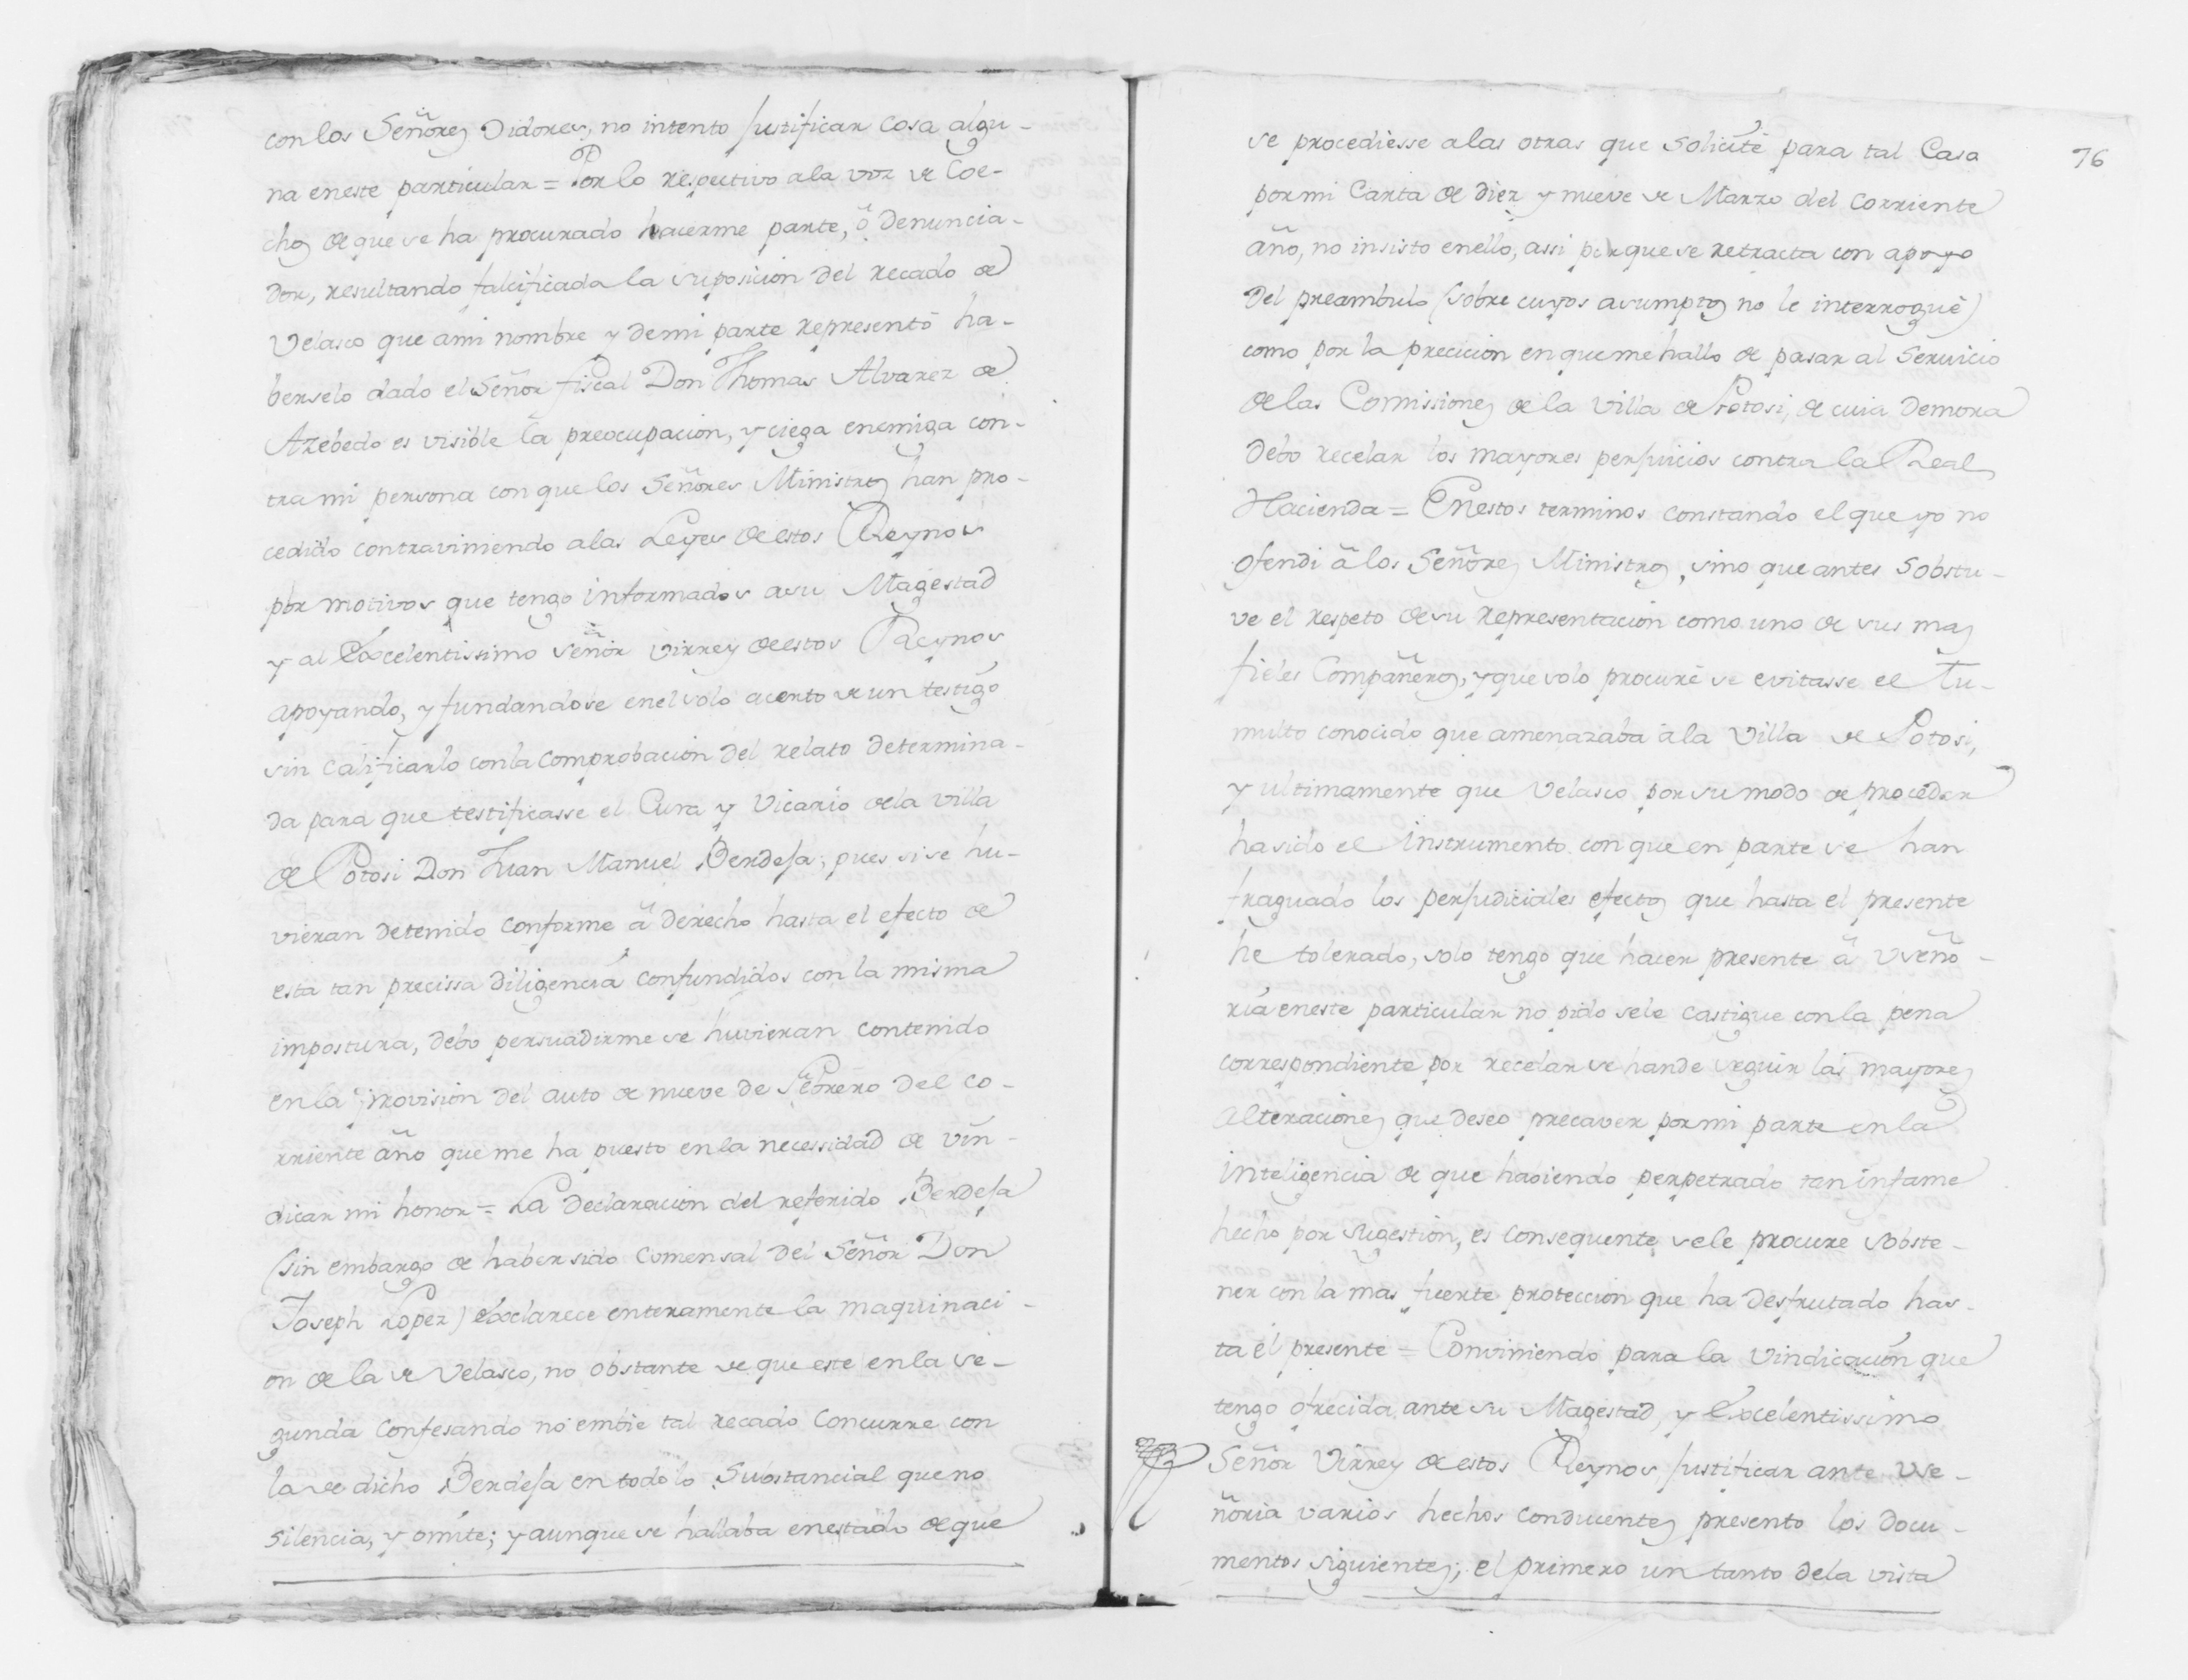 con los Señores Oidores, no intento justificar cosa algu-
na en este particular = Por lo respectivo a la voz de Coe-
chos de que se ha procurado hacerme parte, ò denuncia-
dor, resultando falcificada la suposicion del recado de
Velasco que a mi nombre y de mi parte representó ha-
berselo dado el Señor fiscal Don Thomas Alvarez de
Azebedo es visible la preocupacion, y ciega enemiga con-
tra mi persona con que los Señores Ministros han pro-
cedido contraviniendo a las Leyes de estos Reynos
por motivos que tengo informados a su Magestad
y al Excelentissimo Señor Virrey de estos Reynos
apoyando, y fundandose en el solo acerto de un testigo
sin calificarlo con la comprobacion del relato determina-
da para que testificasse el Cura y Vicario de la Villa
de Potosi Don Juan Manuel Berdeja; pues si se hu-
vieran detenido conforme â derecho hasta el efecto de
esta tan precissa diligencia confundidos con la misma
impostura, debo persuadirme se huvieran contenido
en la provision del auto de nueve de Febrero del co-
rriente año que me ha puesto en la necessidad de vin-
dicar mi honor = La declaracion del referido Berdeja
(sin embargo de haber sido comensal del Señor Don
Joseph Lopez) exclarece enteramente la maquinaci-
on de la de Velasco, no obstante de que este en la se-
gunda confesando no embie tal recado concurre con
la de dicho Berdeja en todo lo substancial que no
silencia, y omite; y aunque se hallaba en estado de que
76
se procediesse a las otras que solicité para tal Casa
por mi Carta de diez y nueve de Marzo del corriente
año, no insisto en ello, assi porque se retracta con apoyo
del preambulo (sobre cuyos asumptos no le interroguè)
como por la precicion en que me hallo de pasar al Servicio
de las Comissiones de la Villa de Potosi, de cuia demora
debo recelar los mayores perjuicios contra la Real
Hacienda = En estos terminos constando el que yo no
ofendi â los Señores Ministros, sino que antes sobstu-
ve el respeto de su representacion como uno de sus mas
fieles Compañeros, y que solo procurè se evitasse el tu-
multo conocido que amenazaba a la Villa de Potosi,
y ultimamente que Velasco por su modo de proceder
ha sido el instrumento con que en parte se han
fraguado los perjudiciales efectos que hasta el presente
he tolerado, solo tengo que hacer presente â Vseño-
ria en este particular no pido se le castigue con la pena
correspondiente por recelar se han de seguir las mayores
alteraciones que deseo precaver por mi parte en la
inteligencia de que habiendo perpetrado tan infame
hecho por sugestion, es consequente se le procure sobste-
ner con la mas fuerte proteccion que ha desfrutado has-
ta el presente = Conviniendo para la vindicacion que
tengo ofrecida ante su Magestad, y Excelentissimo
Señor Virrey de estos Reynos justificar ante Vse-
ñoria varios hechos conducentes presento los docu-
mentos siguientes; el primero un tanto de la vista